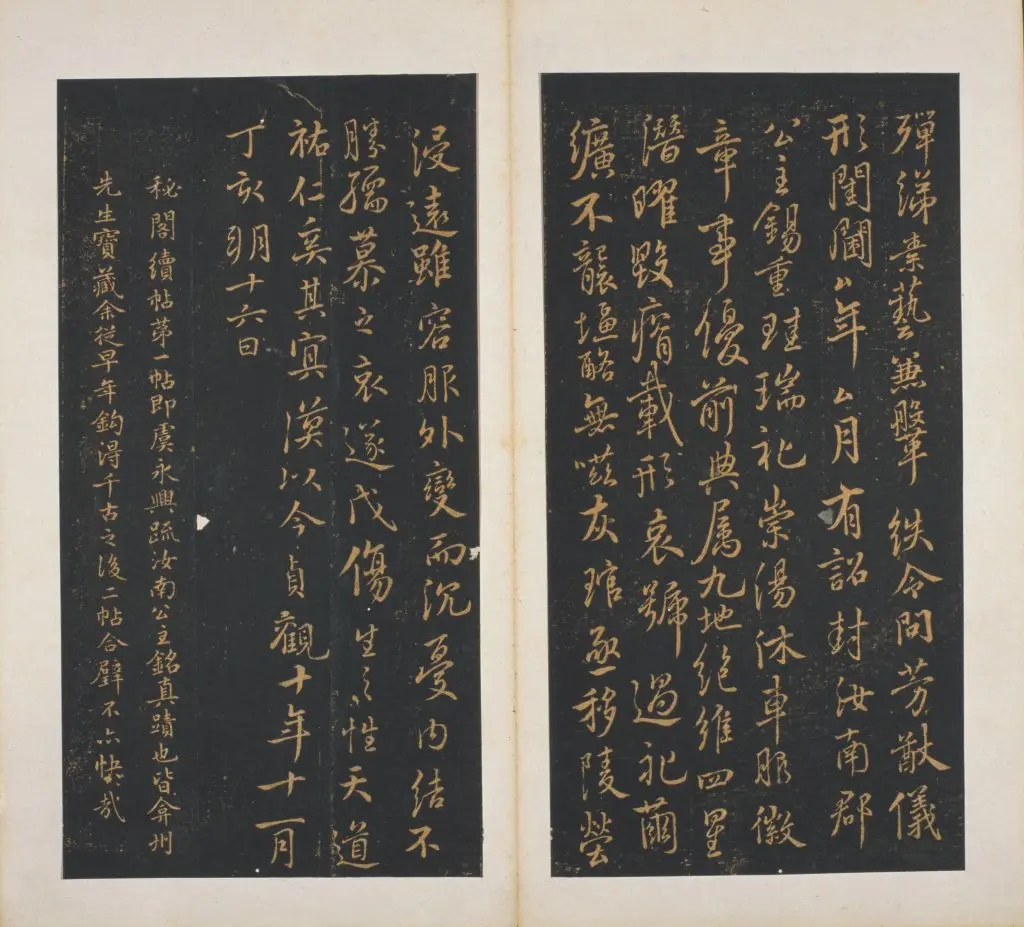 彈緹素藝兼鞶紩令問芳猷儀
形閨閫厶年厶月有詔封汝南郡
公主錫重珪瑞礼崇湯沐車服徽
章事優前典属九地絶維四星
潛曜毀瘠載形哀號過礼繭
纊不襲塩酪無嗞灰琯亟移陵塋
浸遠雖容服外變而沉憂内結不
勝孺慕之哀遂戊傷生之性天道
祐仁奚其冥漠以今貞觀十年十一月
丁亥朔十六日
秘閣續帖第一帖即虞永興疏汝南公主銘真蹟也皆弇州
先生寶藏余從早年鈎得千古之後二帖合璧不亦快哉